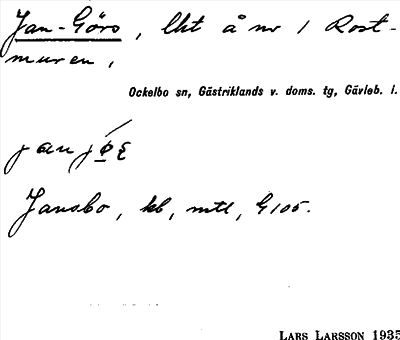 Jan-Görs, lht å nr 1 Rost-
muren,
Ockelbo sn, Gästriklands v. doms. tg, Gävleb. l.
Jansbo, kb, mtl, G105.
LARS LARSSON 1935